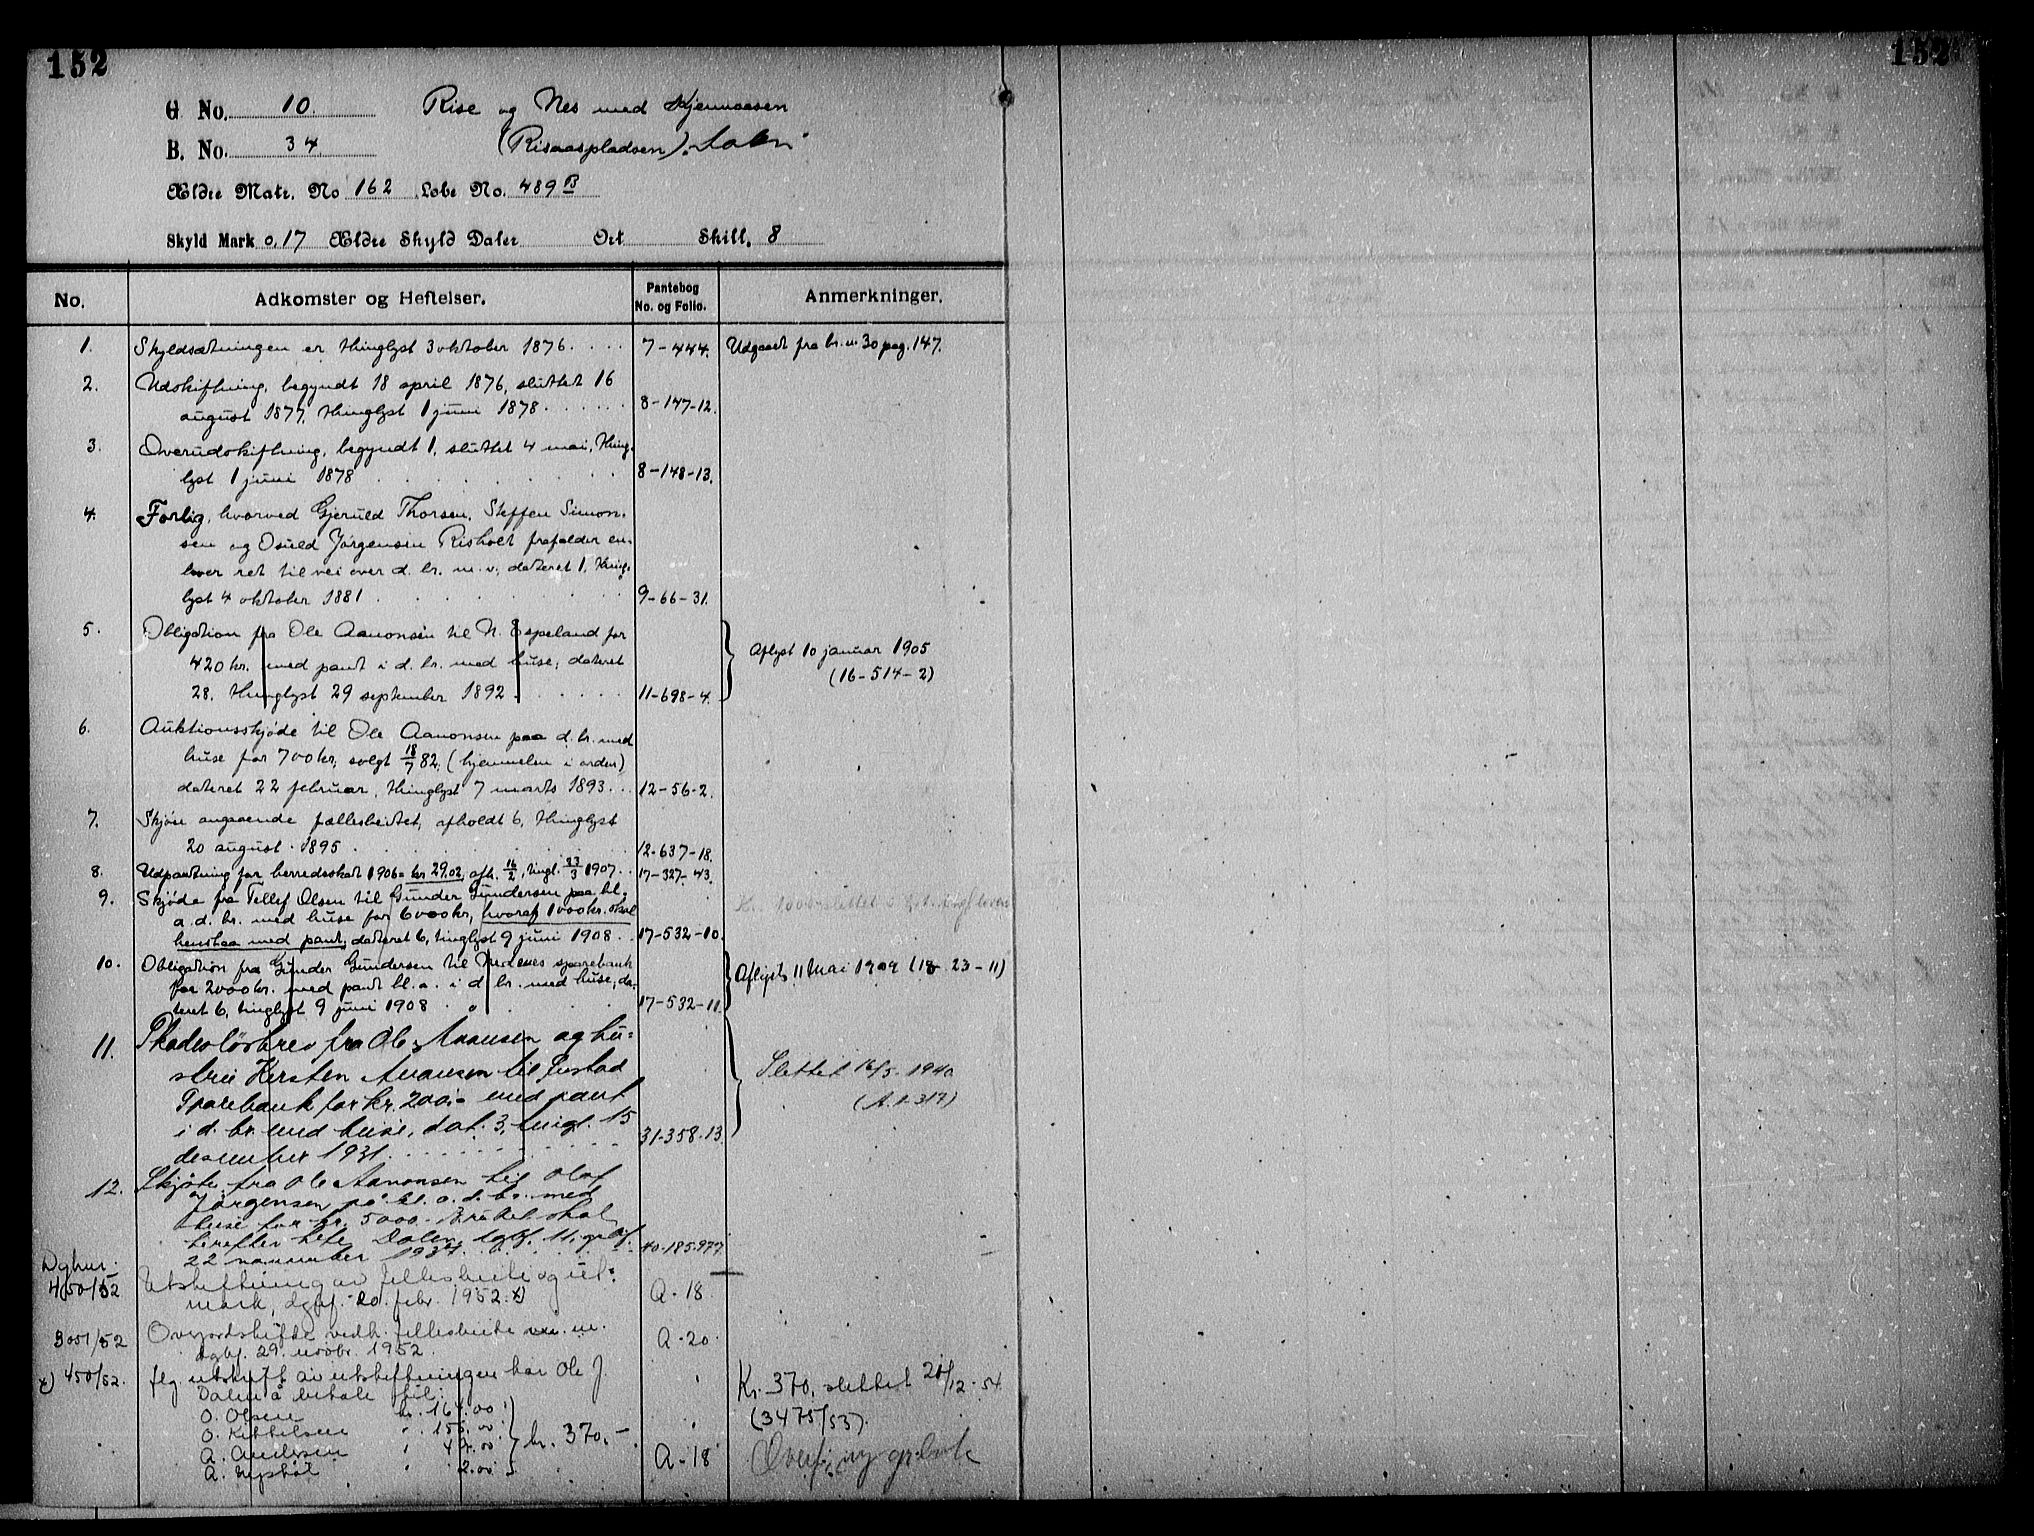 152
152
G No. 10. Rise og Nes med Kjennaasen
B. No. 34 (Risaaspladsen). Dalen
Ældre Matr. No 162 Løbe No. 489 B
Skyld Mark 0,17 Ældre Skyld Daler Ort Skill. 8
No. Adkomster og Heftelser. Pantebog No. og Folio. Anmerkninger.
1. Skyldsætningen er thinglyst 3 oktober 1876. 7-444. Udgaaet fra br. n. 30 pag. 147.
2. Udskiftning, begyndt 18 april 1876, sluttet 16
august 1877, thinglyst 1 juni 1878 8-147-12.
3. Overudskiftning, begyndt 1, sluttet 4 mai, thing-
lyst 1 juni 1878 8-148-13.
4. Forlig, hvorved Gjeruld Thorsen, Steffen Simon-
sen og Osuld Jørgensen Risholt frafalder en-
hver ret til vei over d. br. m. v., dateret 1, thing-
lyst 4 oktober 1881 9-66-31.
5. Obligation fra Ole Aanonsen til N. Espeland for
420 kr. med pant i d. br. med huse, dateret
28. thinglyst 29 september 1892. 11-698-4.
Aflyst 10 januar 1905
(16-514-2)
6. Auktionsskjøde til Ole Aanonsen paa d. br. med
huse for 700 kr, solgt 18/7 82, (hjemmelen i orden)
dateret 22 februar, thinglyst 7 marts 1893. 12-56-2.
7. Skjøn angaaende fællesbeitet, afholdt 6, thinglyst
20 august 1895 12-637-18.
8. Udpantning for herredsskat 1906 = kr 29.02, afh. 16/2, tingl. 23/3 1907. 17-327-43.
9. Skjøde fra Tellef Olsen til Gunder Gundersen paa bl.
a. d. br. med huse for 6000 kr, hvoraf 1000 kr. skal
henstaa med pant, dateret 6, tinglyst 9 juni 1908. 17-532-10.
Kr. 1000 slettet
10. Obligation fra Gunder Gundersen til Nedenes sparebank
for 2000 kr. med pant bl. a. i d. br. med huse, da-
teret 6, tinglyst 9 juni 1908 17-532-11.
Aflyst 11 Mai 1909 (18-23-11)
11. Skadesløsbrev fra Ole Aanonsen og hu-
stru Kirsten Aanonsen til Gjerstad
Sparebank for kr. 200.- med pant
i d. br. med huse, dat. 3, tingl. 15
desember 1931. 31-358-13.
Slettet 16/5. 1940
(A. 1-317)
12. Skjøte fra Ole Aanonsen til Olaf
Jørgensen på bl. a. d. br. med
huse for kr. 5000.- Bruket skal
herefter hete Dalen, 
22 november 1937. 40-185-977
Dgbnr.
450/52 Utskiftning av fellesbeite og ut-
mark, dgbf. 20. febr. 1952. x) A-18.
3051/52 Overjordskifte vedk. fellesbeite m. m.
dgbf. 29. novbr. 1952. A-20.
x) 450/52. Ifg. utskrift av utskiftningen har Ole J.
Dalen å betale til:
O. Olsen kr. 164.00
O. Kittelsen " 155.00
A. Andersen " 49.00
A. Nyshol " 2.00
kr. 370.- A-18
Kr. 370, slettet 21/12-54
(3475/53).
Overf. ny grbok